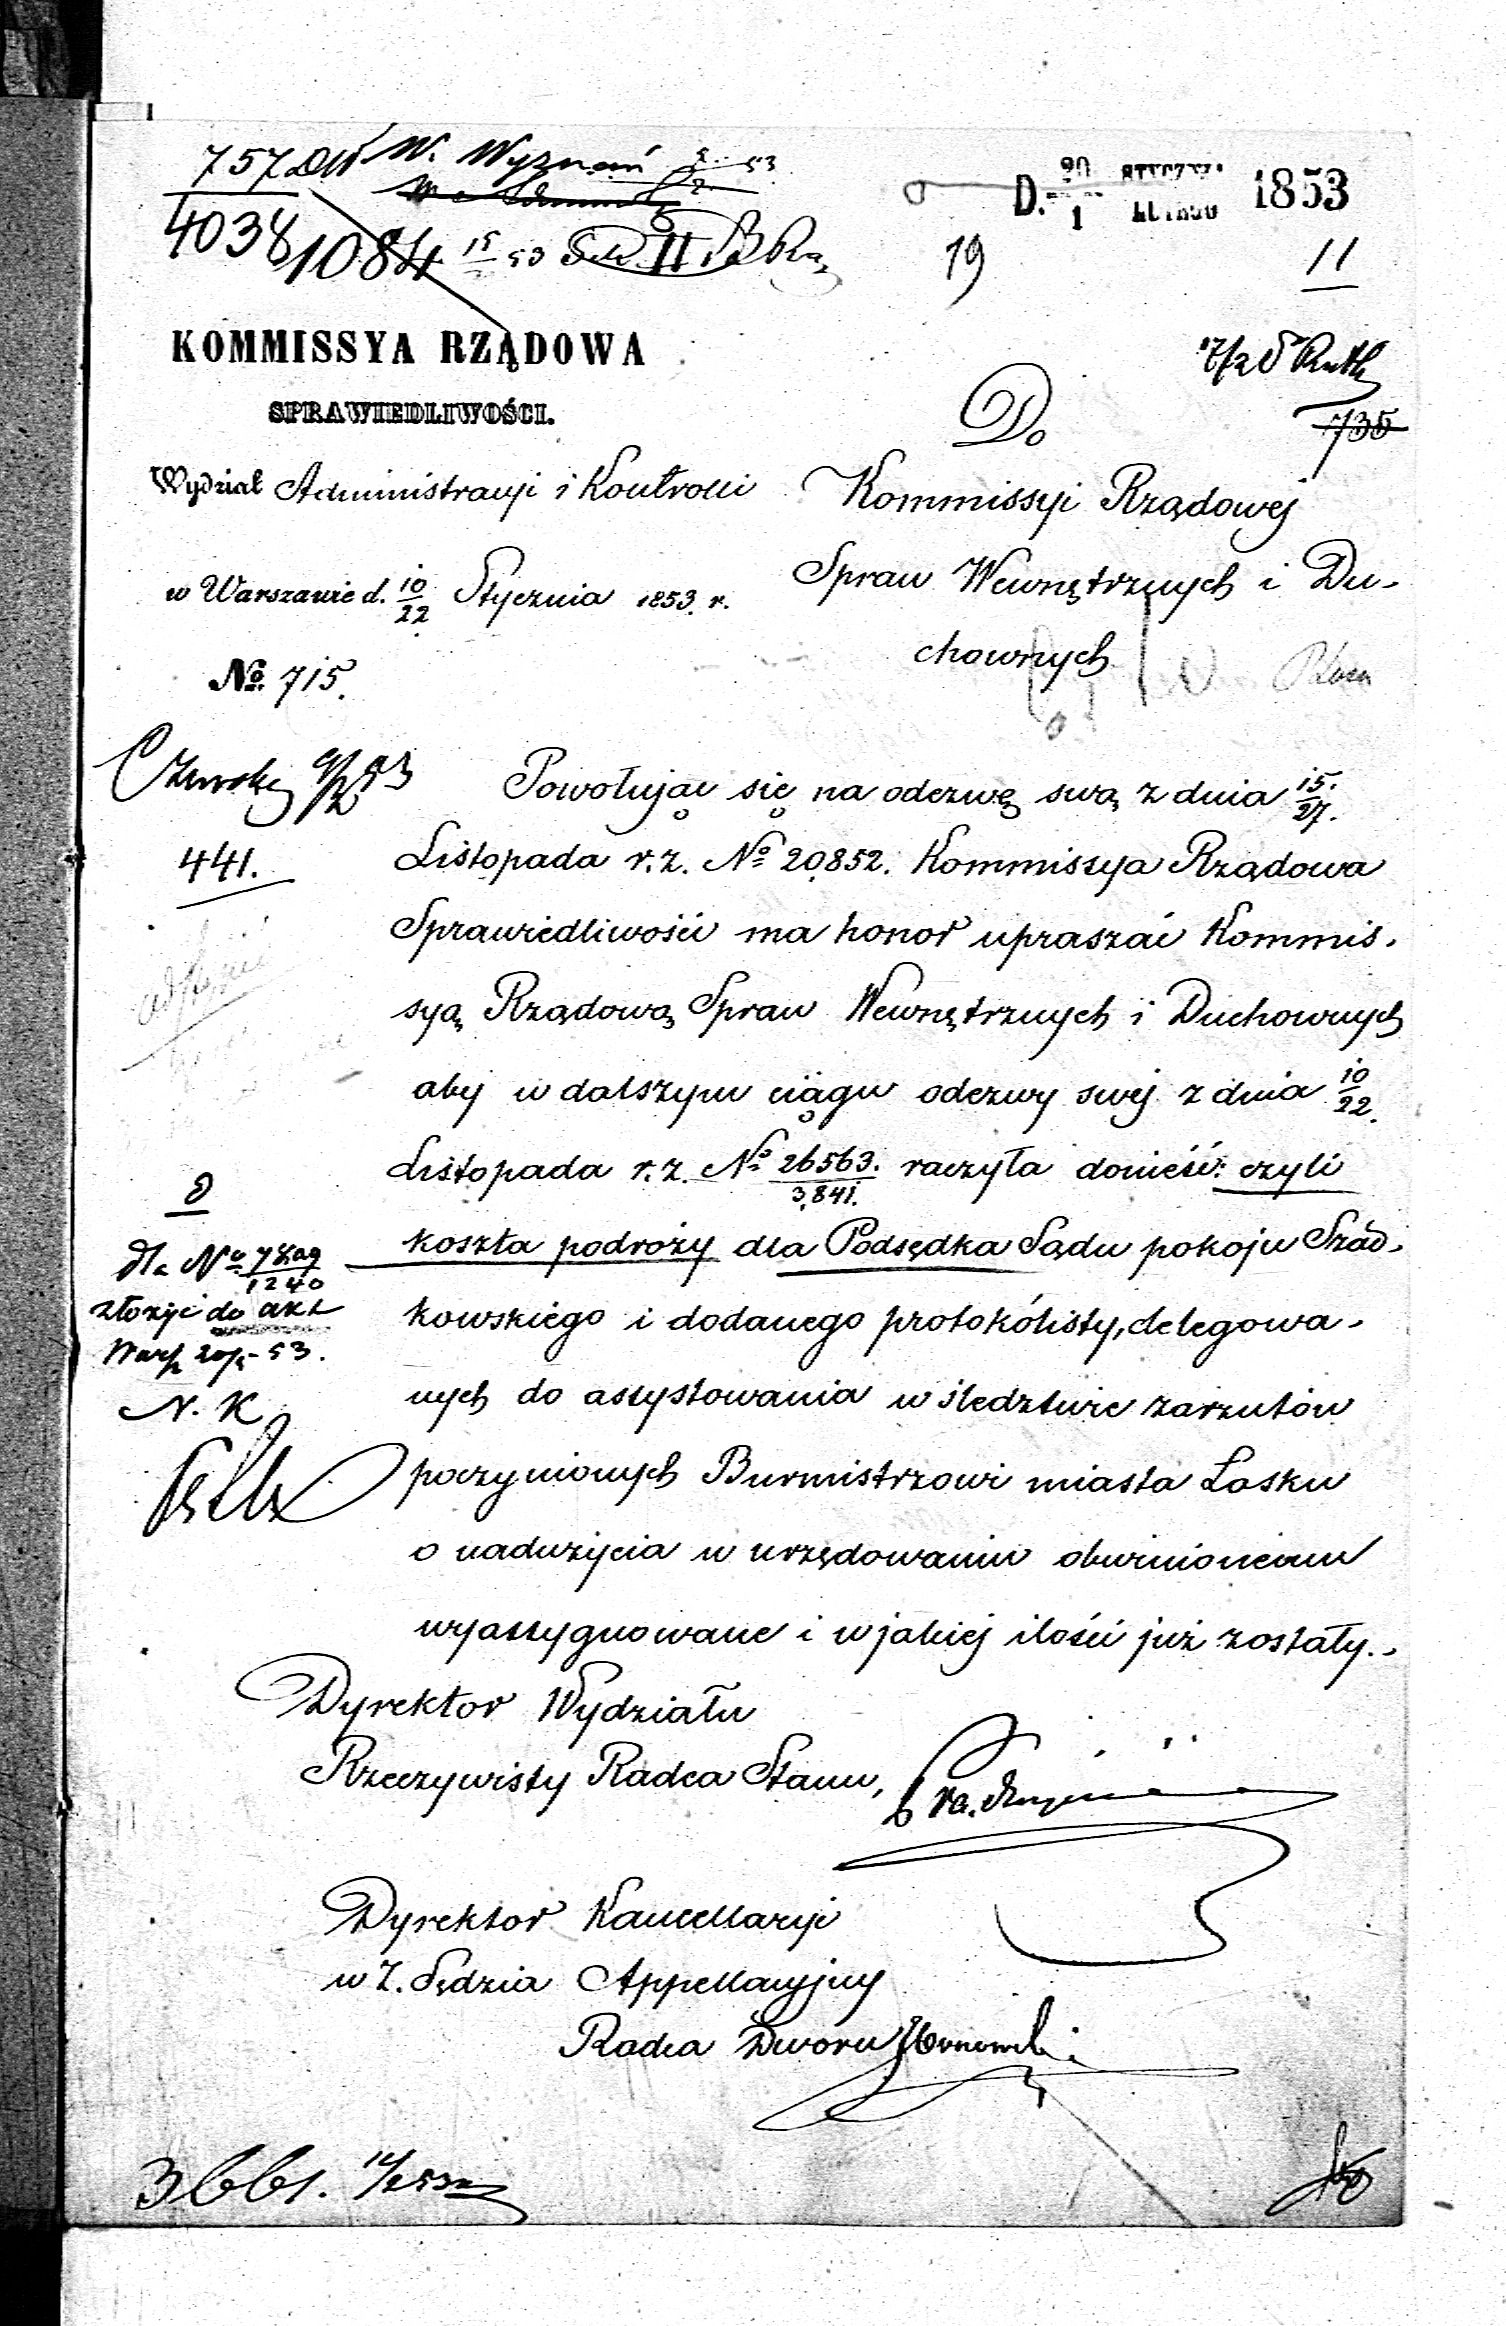 757
4038
W. Wyznań
1084 15 53 II
D. 20 STYCZNIA 1853
1 LUTEGO
19
11
735
KOMMISSYA RZĄDOWA
SPRAWIEDLIWOŚCI.
Wydział Administracyi i Kontrolli
w Warszawie d. 10/22 Stycznia 1853. r.
No 715.
Do
Kommissyi Rządowej
Spraw Wewnętrznych i Du-
chownych
441.
Powołując się na odezwę swą z dnia 15./27.
Listopada r. z. No 20852. Kommissya Rządowa
Sprawiedliwości ma honor upraszać Kommis-
syą Rządową Spraw Wewnętrznych i Duchownych
aby w dalszym ciągu odezwy swej z dnia 10/22.
Listopada r. z. No 26563./3,841. raczyła donieść: czyli
koszta podróży dla Podsędka Sądu pokoju Szad-
kowskiego i dodanego protokólisty, delegowa-
nych do assystowania w śledztwie zarzutów
poczynionych Burmistrzowi miasta Łasku
o nadużycia w urzędowaniu obwinionemu
wyassygnowane i w jakiej ilości już zostały.
dla No
1240
złożyć do akt
N. K
Dyrektor Wydziału
Rzeczywisty Radca Stanu,
Dyrektor Kancellaryi
w Z. Sędzia Appellacyjny
Radca Dworu
3661.